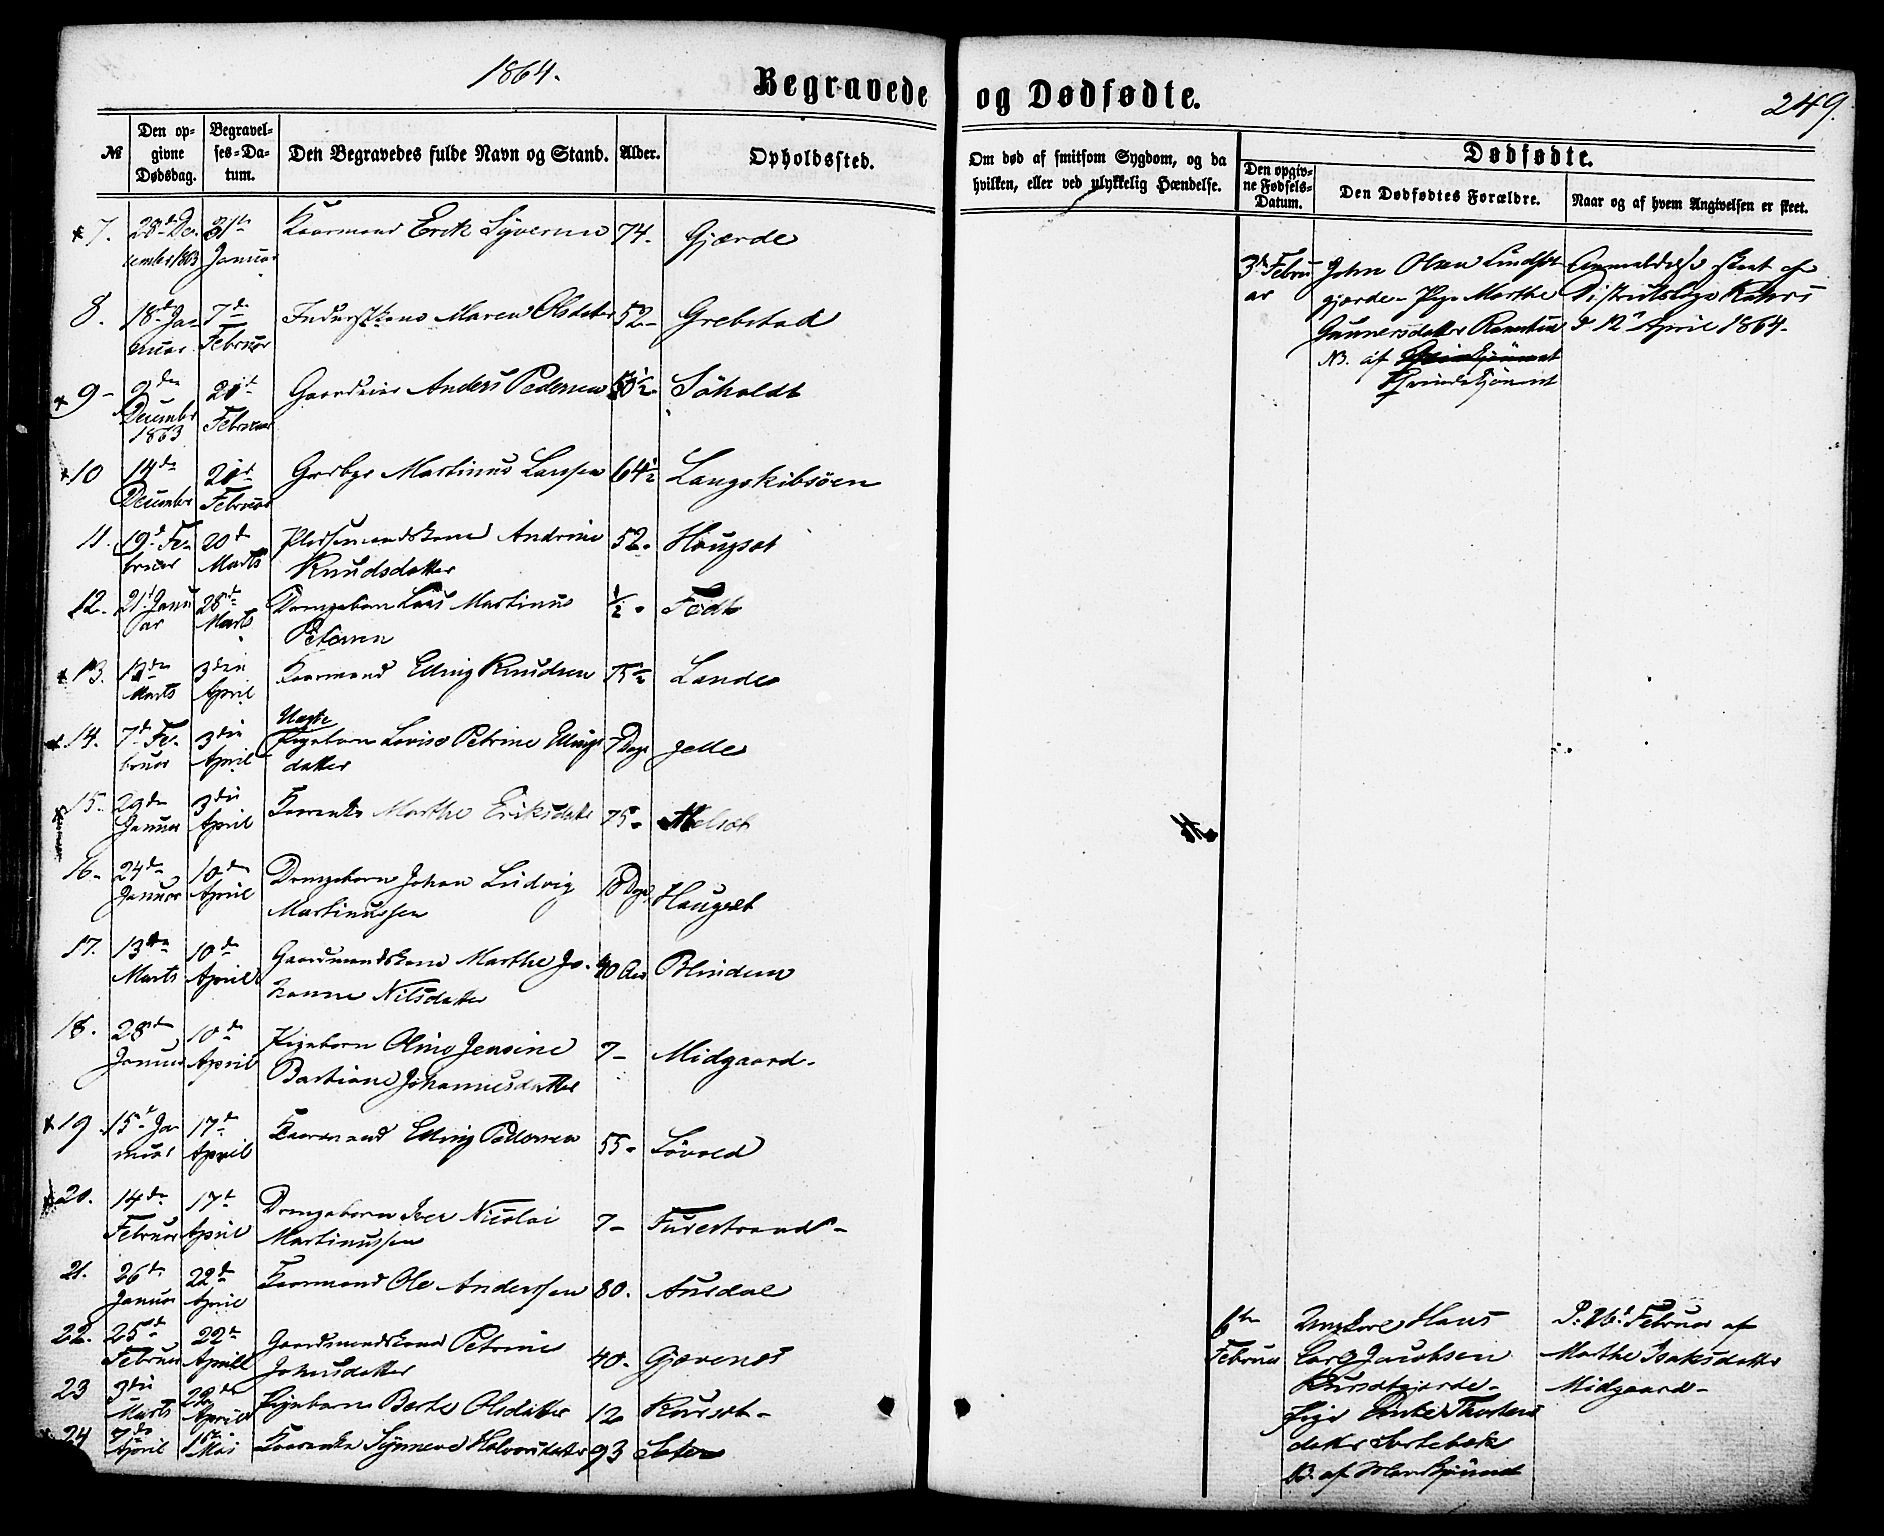 1864.
Begravede og Dødfødte.
249.
№
Den opgivne Dødsdag.
Begravelses-Datum.
Den Begravedes fulde Navn og Stand.
Alder.
Opholdssted.
Om død af smitsom Sygdom, og da hvilken, eller ved ulykkelig Hændelse.
Dødfødte.
Den opgivne Fødsels-Datum.
Den Dødfødtes Forældre.
Naar og af hvem Angivelsen er skeet.
7. 28de December 1863 31te Januar Kaarmand Erik Syversen 74. Gjærde
8. 18de Januar 7de Februar Maren Olsdatter 52 Grebstad
9 2den December 1863 21de Februar Gaardeier Anders Pedersen Søholdt
10 14de December 21de Februar Martinus Larssen 64½ Langskibsøen
11. 19de Februar 20de Marts Pladsemandskone Andrine
Knudsdatter 52. Haugset
12. 21de Januar 28de Marts Drengebarn Laas Martinus
Petersen ½. Fedt
13. 13de Marts 3den April Kaarmand Elling Knudsen 75½ Lande
14. 7de Februar 3die April Uægte
Pigebarn Lovise Petrine Ellings
datter 7 Dage
15. 29de Januar 3die April Kaarenke Marthe Eriksdatter 75 Melset
16. 24de Januar 10de April Drengebarn Johan Ludvig
Martinussen Dage Haugset
17. 13de Marts 10de April Gaardmandskone Marthe Jo-
hanne Nilsdatter 40 Aar Blindem
18. 28de Januar 10de April Pigebarn Oline Jensine
Bastiane Johannesdatter 7 Midgaard
19 15de Januar 17de April Kaarmand Elling Pedersen 55 Løvold
20. 14de Februar 17de April Drengebarn Iver Nicolai
Martinussen 7 Furestrand
21. 26de Januar 22de April Kaarmand Ole Anderssen 80. Aursdal
22. 25de Februar 22de April Gaardmandskone Petrine
Johnsdatter 40. Gjævenes
23 3die Marts April Pigebarn Berte Olsdatter 12 Kurset
24 7de April 1ste Mai Kaarenke Synneve Halvorsdatter 93 Seter
3die Februar
John Olsen Lindset
gjærde - Pige Marthe
Gunnersdatter
NB. af
Anmeldelse skeet af
Distriktslæge
d 12te April 1864.
6te Februar
Ungkarl Hans
Jacobsen
Kursetgjærde-
Pige
NB. af
Februar af
Marthe Isaksdatter
Midgaard